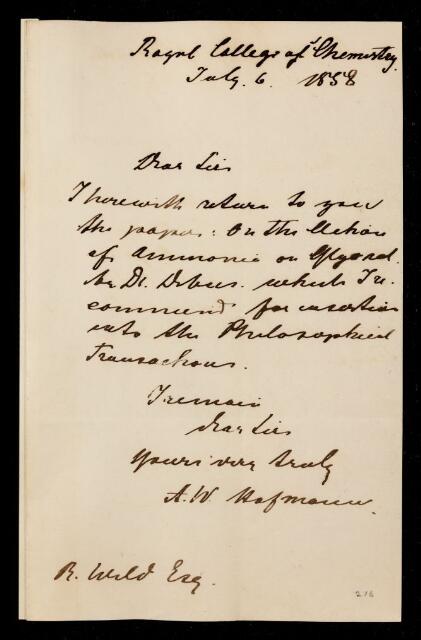 Royal College of Chemistry.
July. 6. 1858
Dear Sir
I herewith return to you
the paper: On the Action
of Ammonia on Glyoxal.
by Dr. Debus. which I re-
commend for insertion
into the Philosophical
Transactions.
I remain
dear Sir
Yours very truly
A. W. Hofmann.
R. Weld Esq.
216